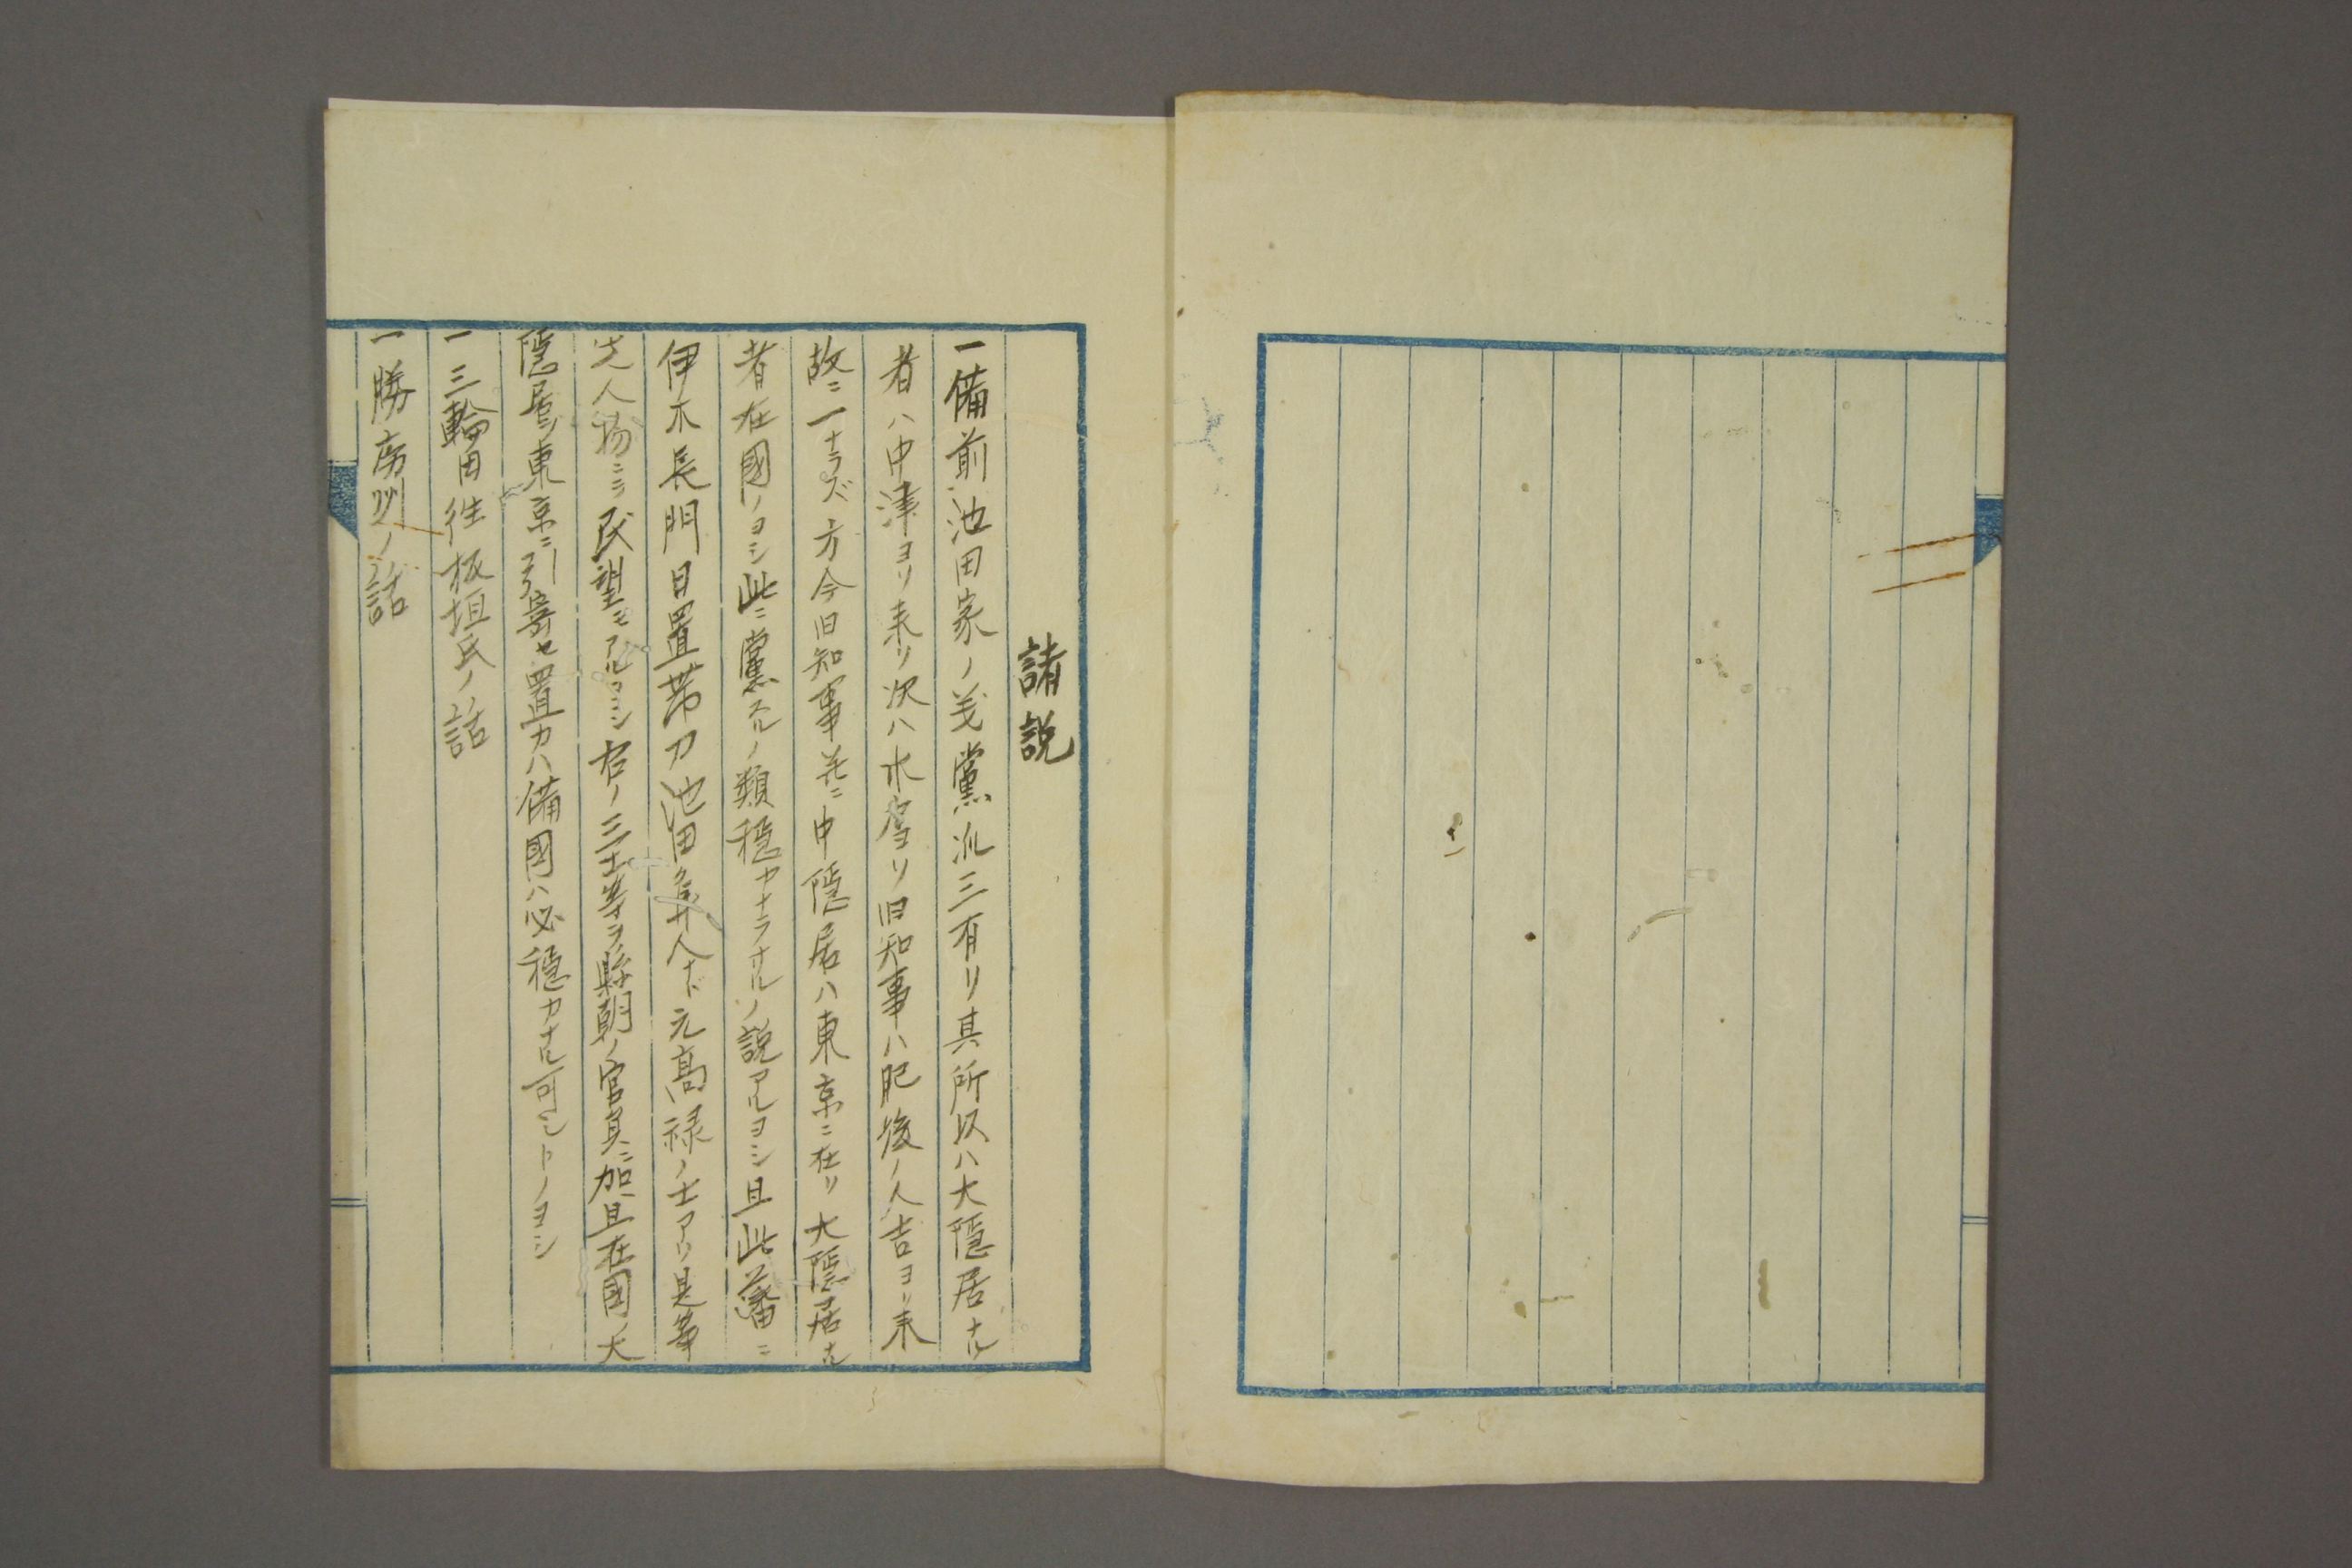 諸説
一備前池田家ノ義黨派三有リ其所以ハ大隠居ナル
者ハ中津ヨリ来リ次ハ水戸ヨリ旧知事ハ肥後ノ人吉ヨリ来
故ニ一ナラズ方今旧知事并ニ中隠居ハ東京ニ在リ大隠居ナル
者在國ノヨシ此ニ黨スルノ類穏カナラサルノ説アルヨシ且此藩ニ
伊木長門日置帯刀池田隼人ナド元高禄ノ士アリ是等
先人物ニテ民望モアルヨシ右ノ三士等ヲ縣朝ノ官員ニ加且在國ノ大
隠居ヲ東京ニ引寄セ置カハ備國ハ必穏カナル可シトノヨシ
一三輪田往板垣氏ノ話
一勝房州ノ話